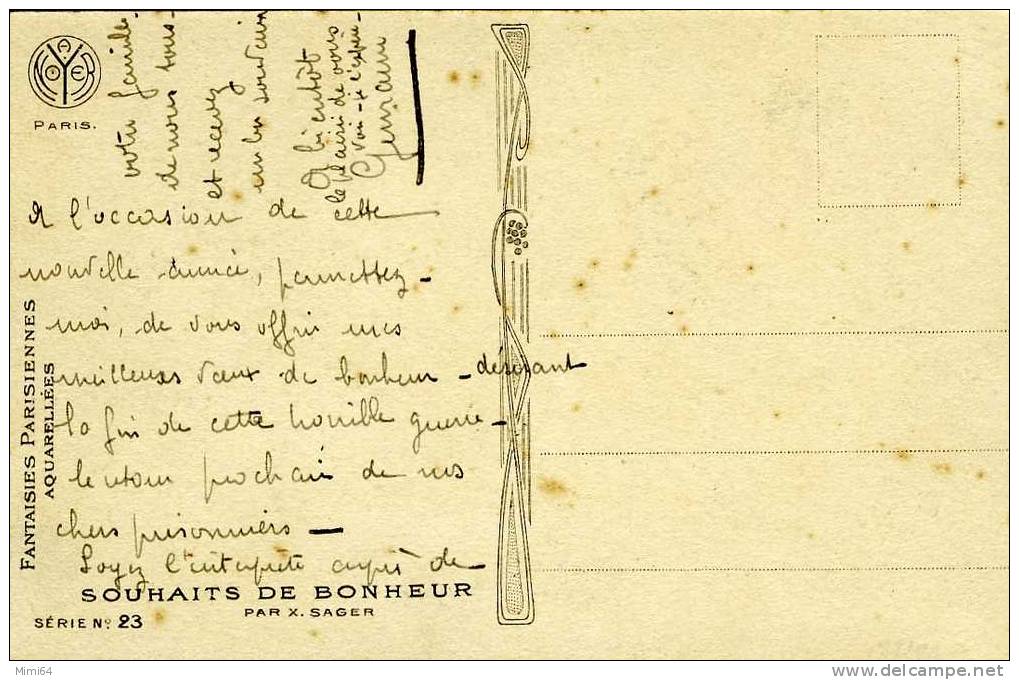 A NOYER
PARIS.
A l'occasion de cette
nouvelle année, permettez-
moi, de vous offrir mes
meilleures vœux de bonheur - désirant
la fin de cette horrible guerre -
le retour prochain de nos
chers prisonniers -
Soyez l'interprète auprès de
votre famille
de nous tous
et recevez
un bon souvenir
A bientôt
le plaisir de vous
voir - je l'espère
Germain
FANTAISIES PARISIENNES
AQUARELLÉES
SOUHAITS DE BONHEUR
PAR X. SAGER
SÉRIE No 23
Mimi64
delcampe.net